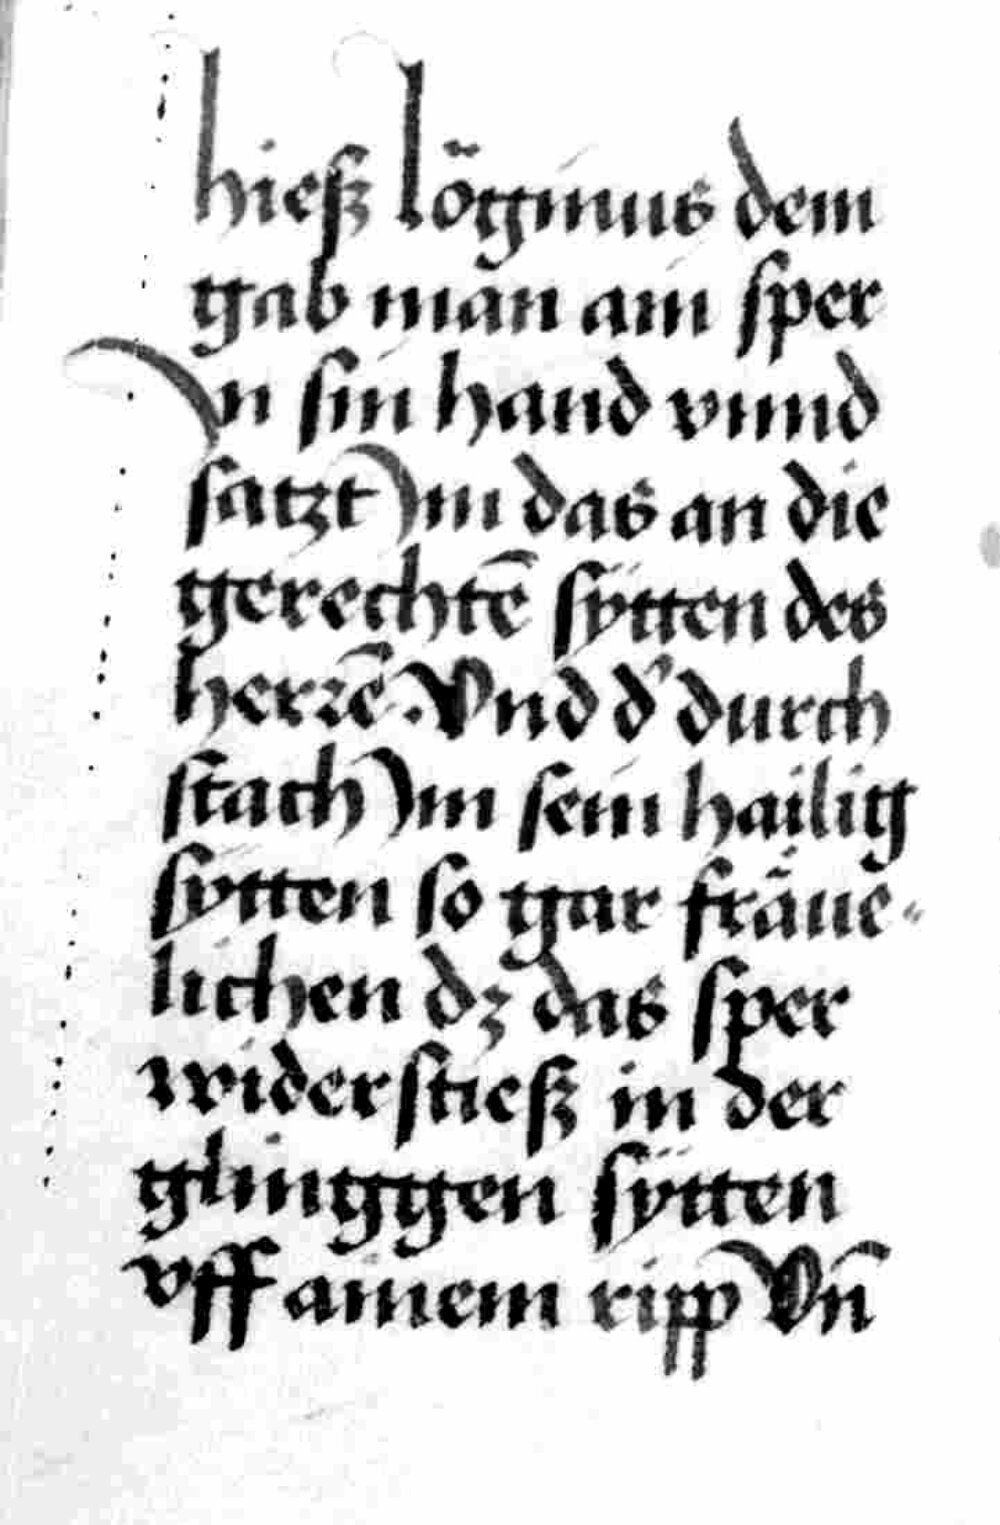 hieß lo̎gginus dem
gab man ain sper
In sin hand vnnd
satzt Im das an die
gerechtē sÿtten des
herrē. Vnd d' durch
stach Im sein hailig
sÿtten so gar fräue-
lichen dz das sper
widerstieß in der
glinggen sÿtten
vff ainem ripp Vn̄